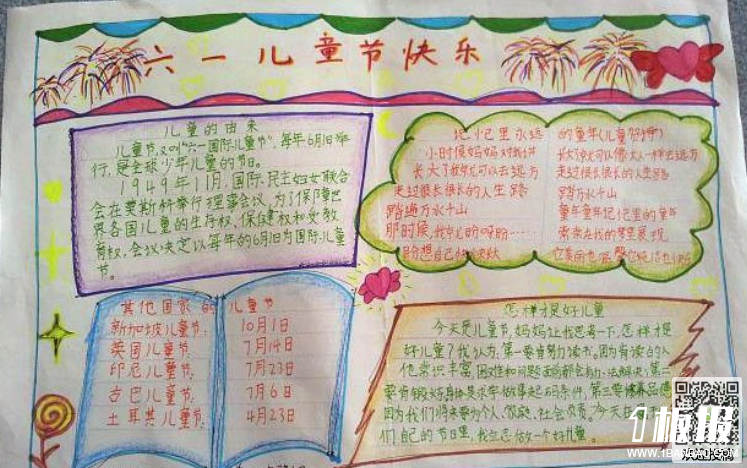 六一儿童节快乐
儿童的由来
儿童节,又叫"六一国际儿童节",每年6月1日举
行,是全球少年儿童的节日。
1949年11月,国际民主妇女联合
会在莫斯科举行理事会议,为了保障世
界各国儿童的生存权、保健权和受教
育权,会议决定以每年的6月1日为国际儿童
节。
记忆里永远
小时候妈妈对我讲
长大了我就可以去远方
走过很长很长的人生路
踏遍万水千山
那时候,我
盼想自己
的童年(儿童
长大了就可以像大人一样去远方
走过很长很长的人生路
踏万水千山
童年童年记忆里的童年
其他国家的儿童节
新加坡儿童节: 10月1日
英国儿童节: 7月14日
印尼儿童节: 7月23日
古巴儿童节: 7月6日
土耳其儿童节: 4月23日
怎样才是好儿童
今天是儿童节,妈妈让我思考一下,怎样才是
好儿童?我认为,第一要肯努力读书。因为有读的人
他常识丰富,困难和问题面前都会努力去解决;第二
要有好身体是求学做事起码条件,第三要修养品德
因为我们将来要为个人、家庭、社会负责。今天在
们自己的节日里,我立志做一个好儿童。
板报
WWW.1BANBAO.COM